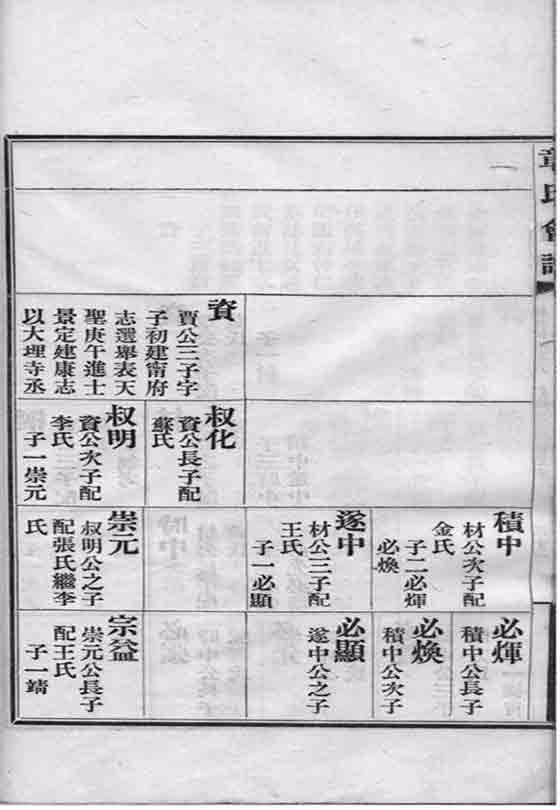 章氏會譜
一
資
賈公三子字
子初建甯府
志選舉表天
聖庚午進士
景定建康志
以大理寺丞
叔化
資公長子配
蘇氏
叔明
資公次子配
李氏
子一崇元
積中
材公次子配
金氏
子二必煇
必煥
遂中
材公三子配
王氏
子一必顯
崇元
叔明公之子
配張氏繼李
氏
必煇
積中公長子
必煥
積中公次子
必顯
遂中公之子
宗益
崇元公長子
配王氏
子一靖